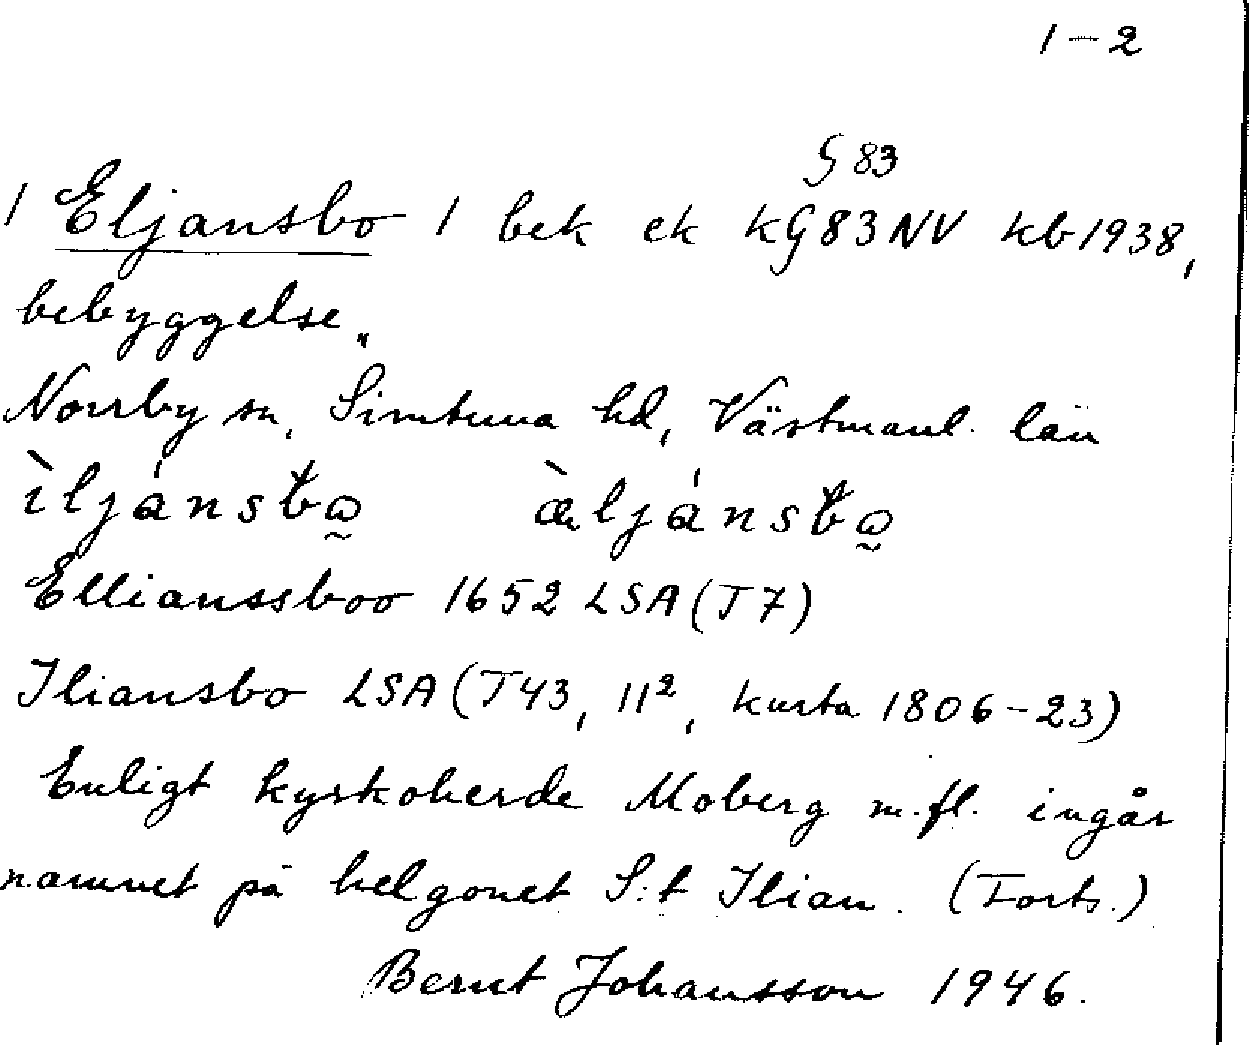 1-2
§ 83
1 Eljansbo 1 bek ek k§83NV kb1938,
bebyggelse„
Norrby sn, Simtuna hd, Västmanl. län
ìljánsƀo̰ æ̀ljánsƀo̰
Ellianssboo 1652 LSA(T7)
Iliansbo LSA(T43, 11², karta 1806-23)
Enligt kyrkoherde Moberg m.fl. ingår
namnet på helgonet S:t Ilian. (Forts.)
Bernt Johansson 1946.